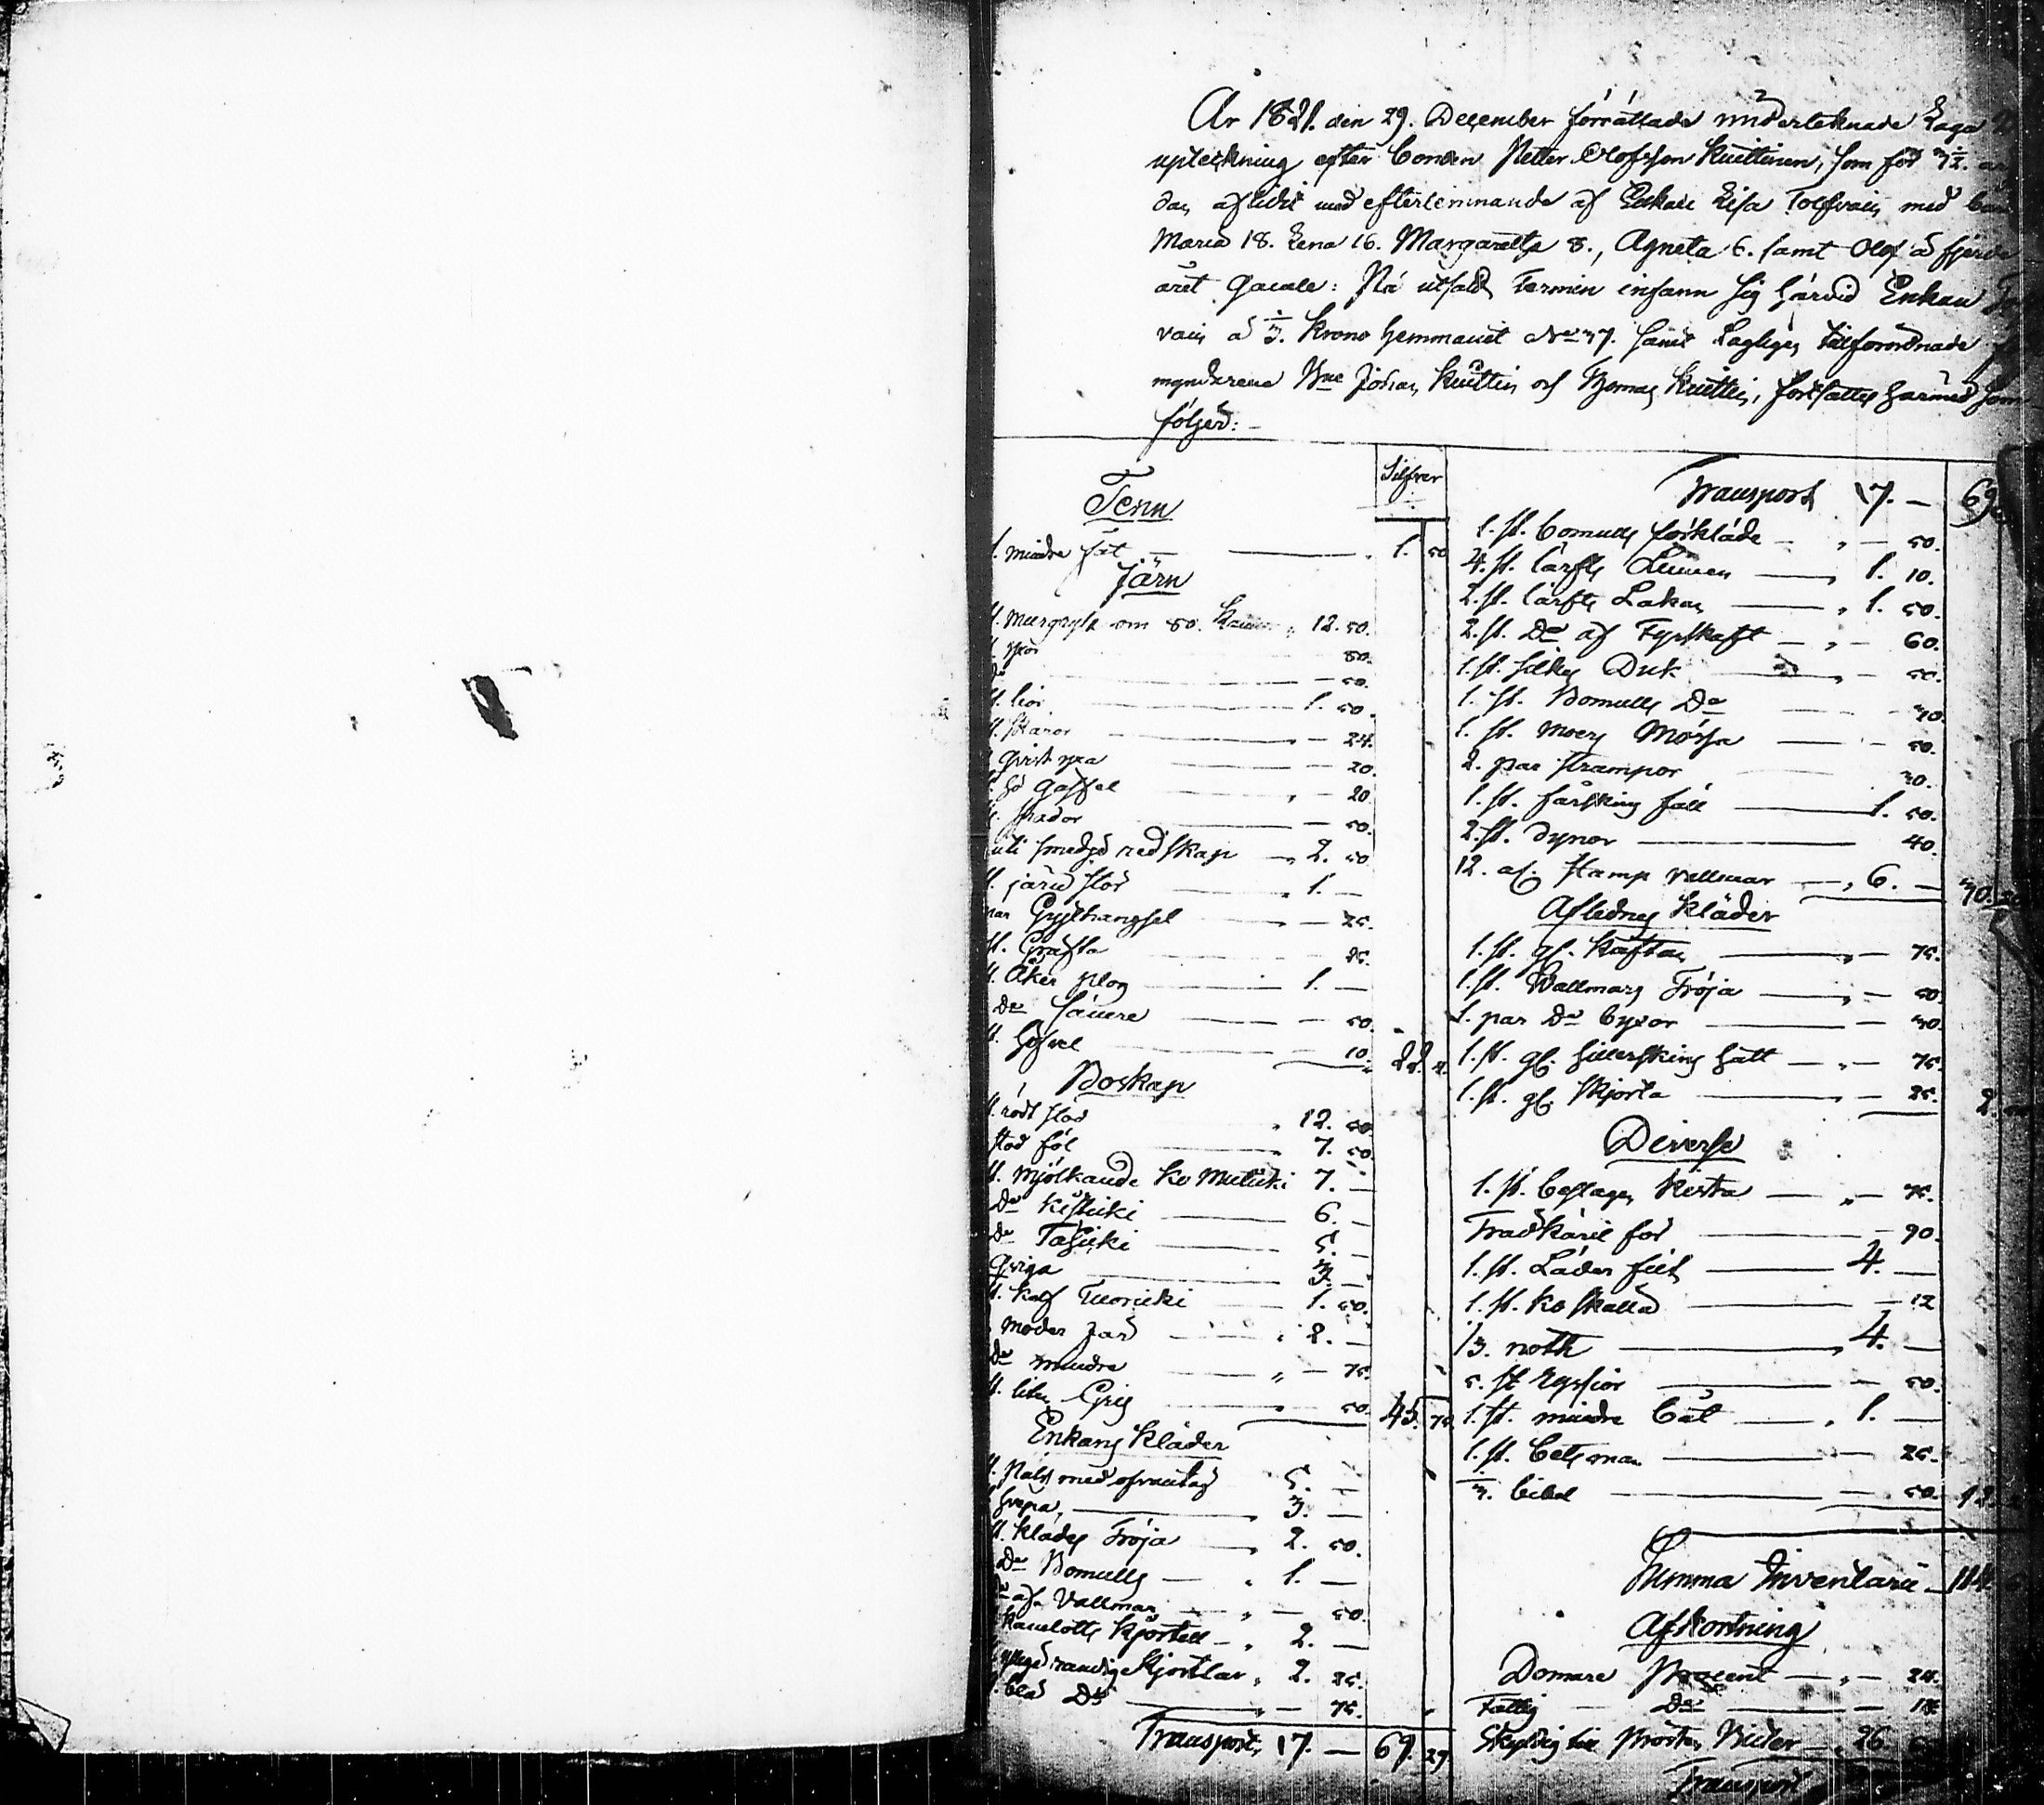 År 1821. den 29. December förrättade undertecknade Laga
upteckning efter Bonden Petter Olofsson Kuittinen, som för 3½.
dar aflidit med efterlemnande af Enkan Lisa Tolfvain med
Maria 18. Lena 16. Margaretha 8., Agneta 6. samt Olof å fjerde
året Gamle: På utsatt Termin infann sig härvid Enkan
vain å ⅓. Krono hemmanet No 37. samt Lagligen tillförordnade
myndarene Bne Johan Kuittin och Thomas Kuittin, författtes härmed som
följer:
Silfver
Tenn
1. mindre fat — 1. 50
Järn
st. Murgryta om 50. Kannor 12. 50.
80.
do — 50.
st. lior 1. 50.
st. Skäror — 24.
— 20.
gaffel — 20.
st. Skador — 50.
smedje redskap 2. 50
st. järn stör 1. —
par 25.
st. Gräfta 25.
st. Åker plog 1. —
Do sämre — 50.
st. Höfvel — 10. 22.
Boskap
st. rödt sto 12. 50.
stod föl 7. 50.
st. Mjölkande ko Mutuki 7. —
Do Kistuki 6. —
Do Tähiki 5. —
Qviga 3. —
st. Kalf Tuoriki 1. 50.
moder får 2. —
do mindre — 75.
st. liten Gris 50. 45. 75.
Enkans kläder
st. Päls med ofvantag 5. —
3. —
st. Klädes Tröja 2. 50.
Do Bomulls — 1. —
af Vallmar — 50.
Kamelotts Kjortel — 2. —
randige Kjortlar 2. 25.
blå Do — 75.
Transport 17. — 69. 29.
Transport 17. — 69.
1. st. bomulls förkläde — 50.
4. st. lärfts Linnen — 1. 10.
2. st. lärfts Lakan — 1. 50.
2. st. Do af Fyrskaft — 60.
1. st. silkes Duk — 50.
1. st. Bomulls Do — 30.
1. st. Mössa — 50.
2. par strumpor 30.
1. st. fårskins fäll 1. 50.
2. st. dynor 40.
12. al. Stamp vallmar 6. — 30. 20
Aflednes kläder
1. st. gl. Kaftan — 75.
1. st. Vallmars Tröja — 50.
1. par Do byxor — 30.
1. st. gl. hatt — 75.
1. st. gl. Skjorta — 25. 2.
Diverse
1. st. beslagen Kista — 75.
Trädkäril för — 90.
1. st. Läder 4. —
1. st. ko skälla — 12
⅓. noth 4. —
5. st. — 50.
1. st. mindre båt 1. —
1. st. betsman — 25.
⅓. bibel — 50. 12.
Summa Inventarii 114.
Afkortning
Domare Procent — 24.
Fattig Do —
Skyldig till Mårten 26.
Transport